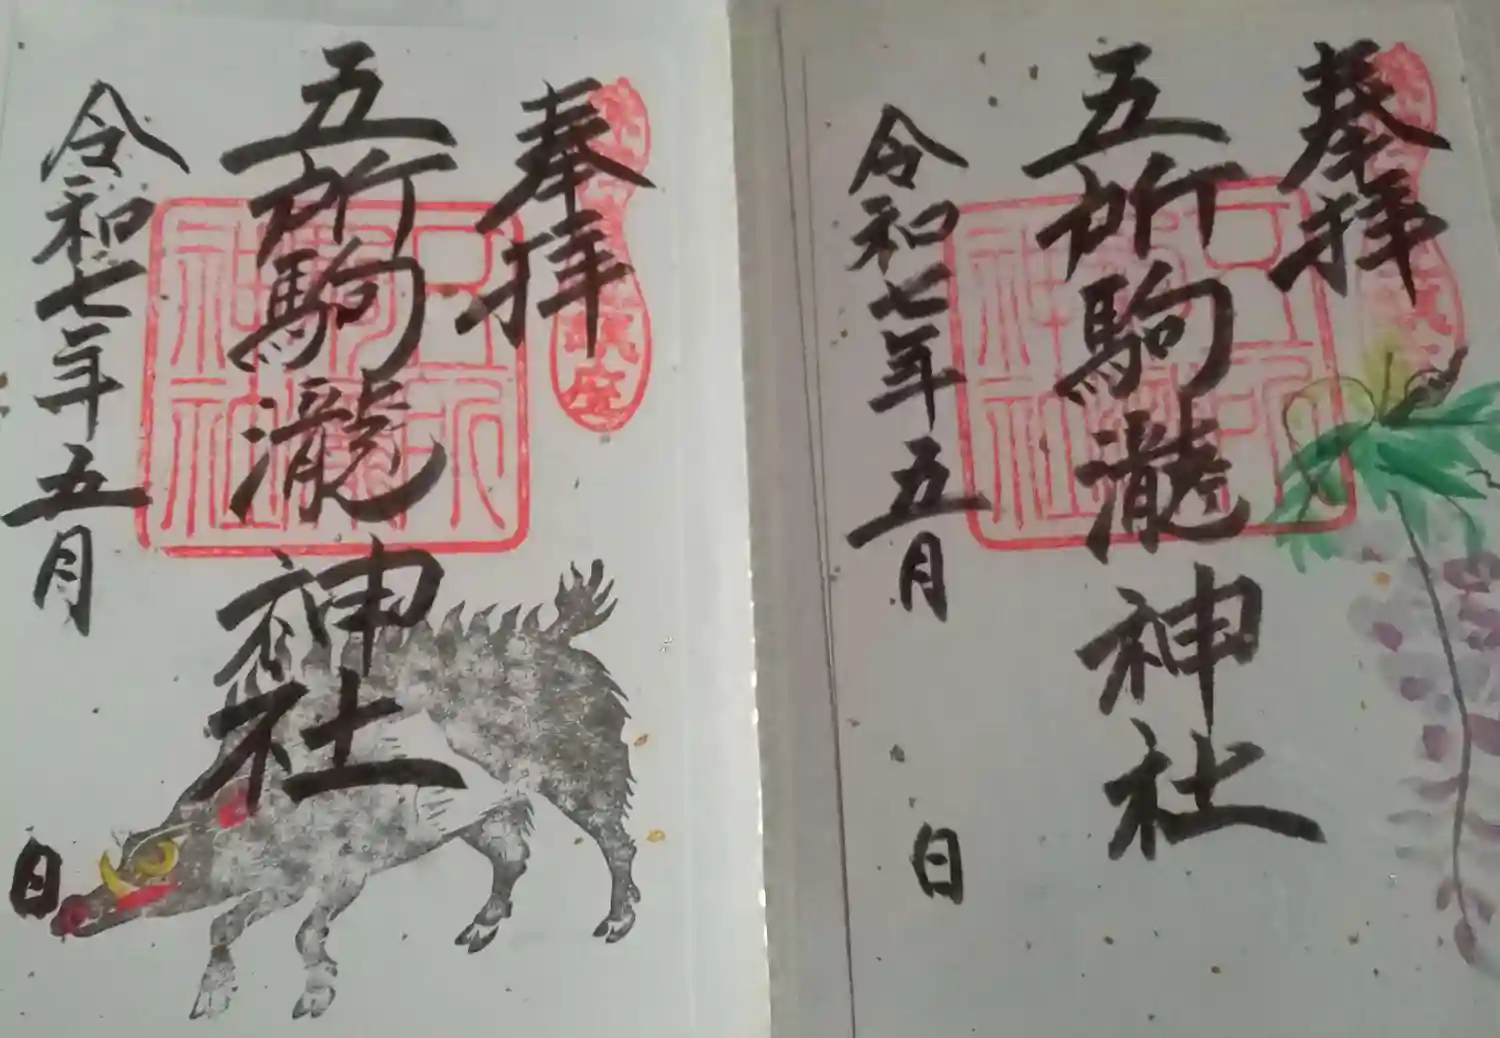 奉拝
五所駒瀧神社
令和七年五月 日
奉拝
五所駒瀧神社
令和七年五月 日